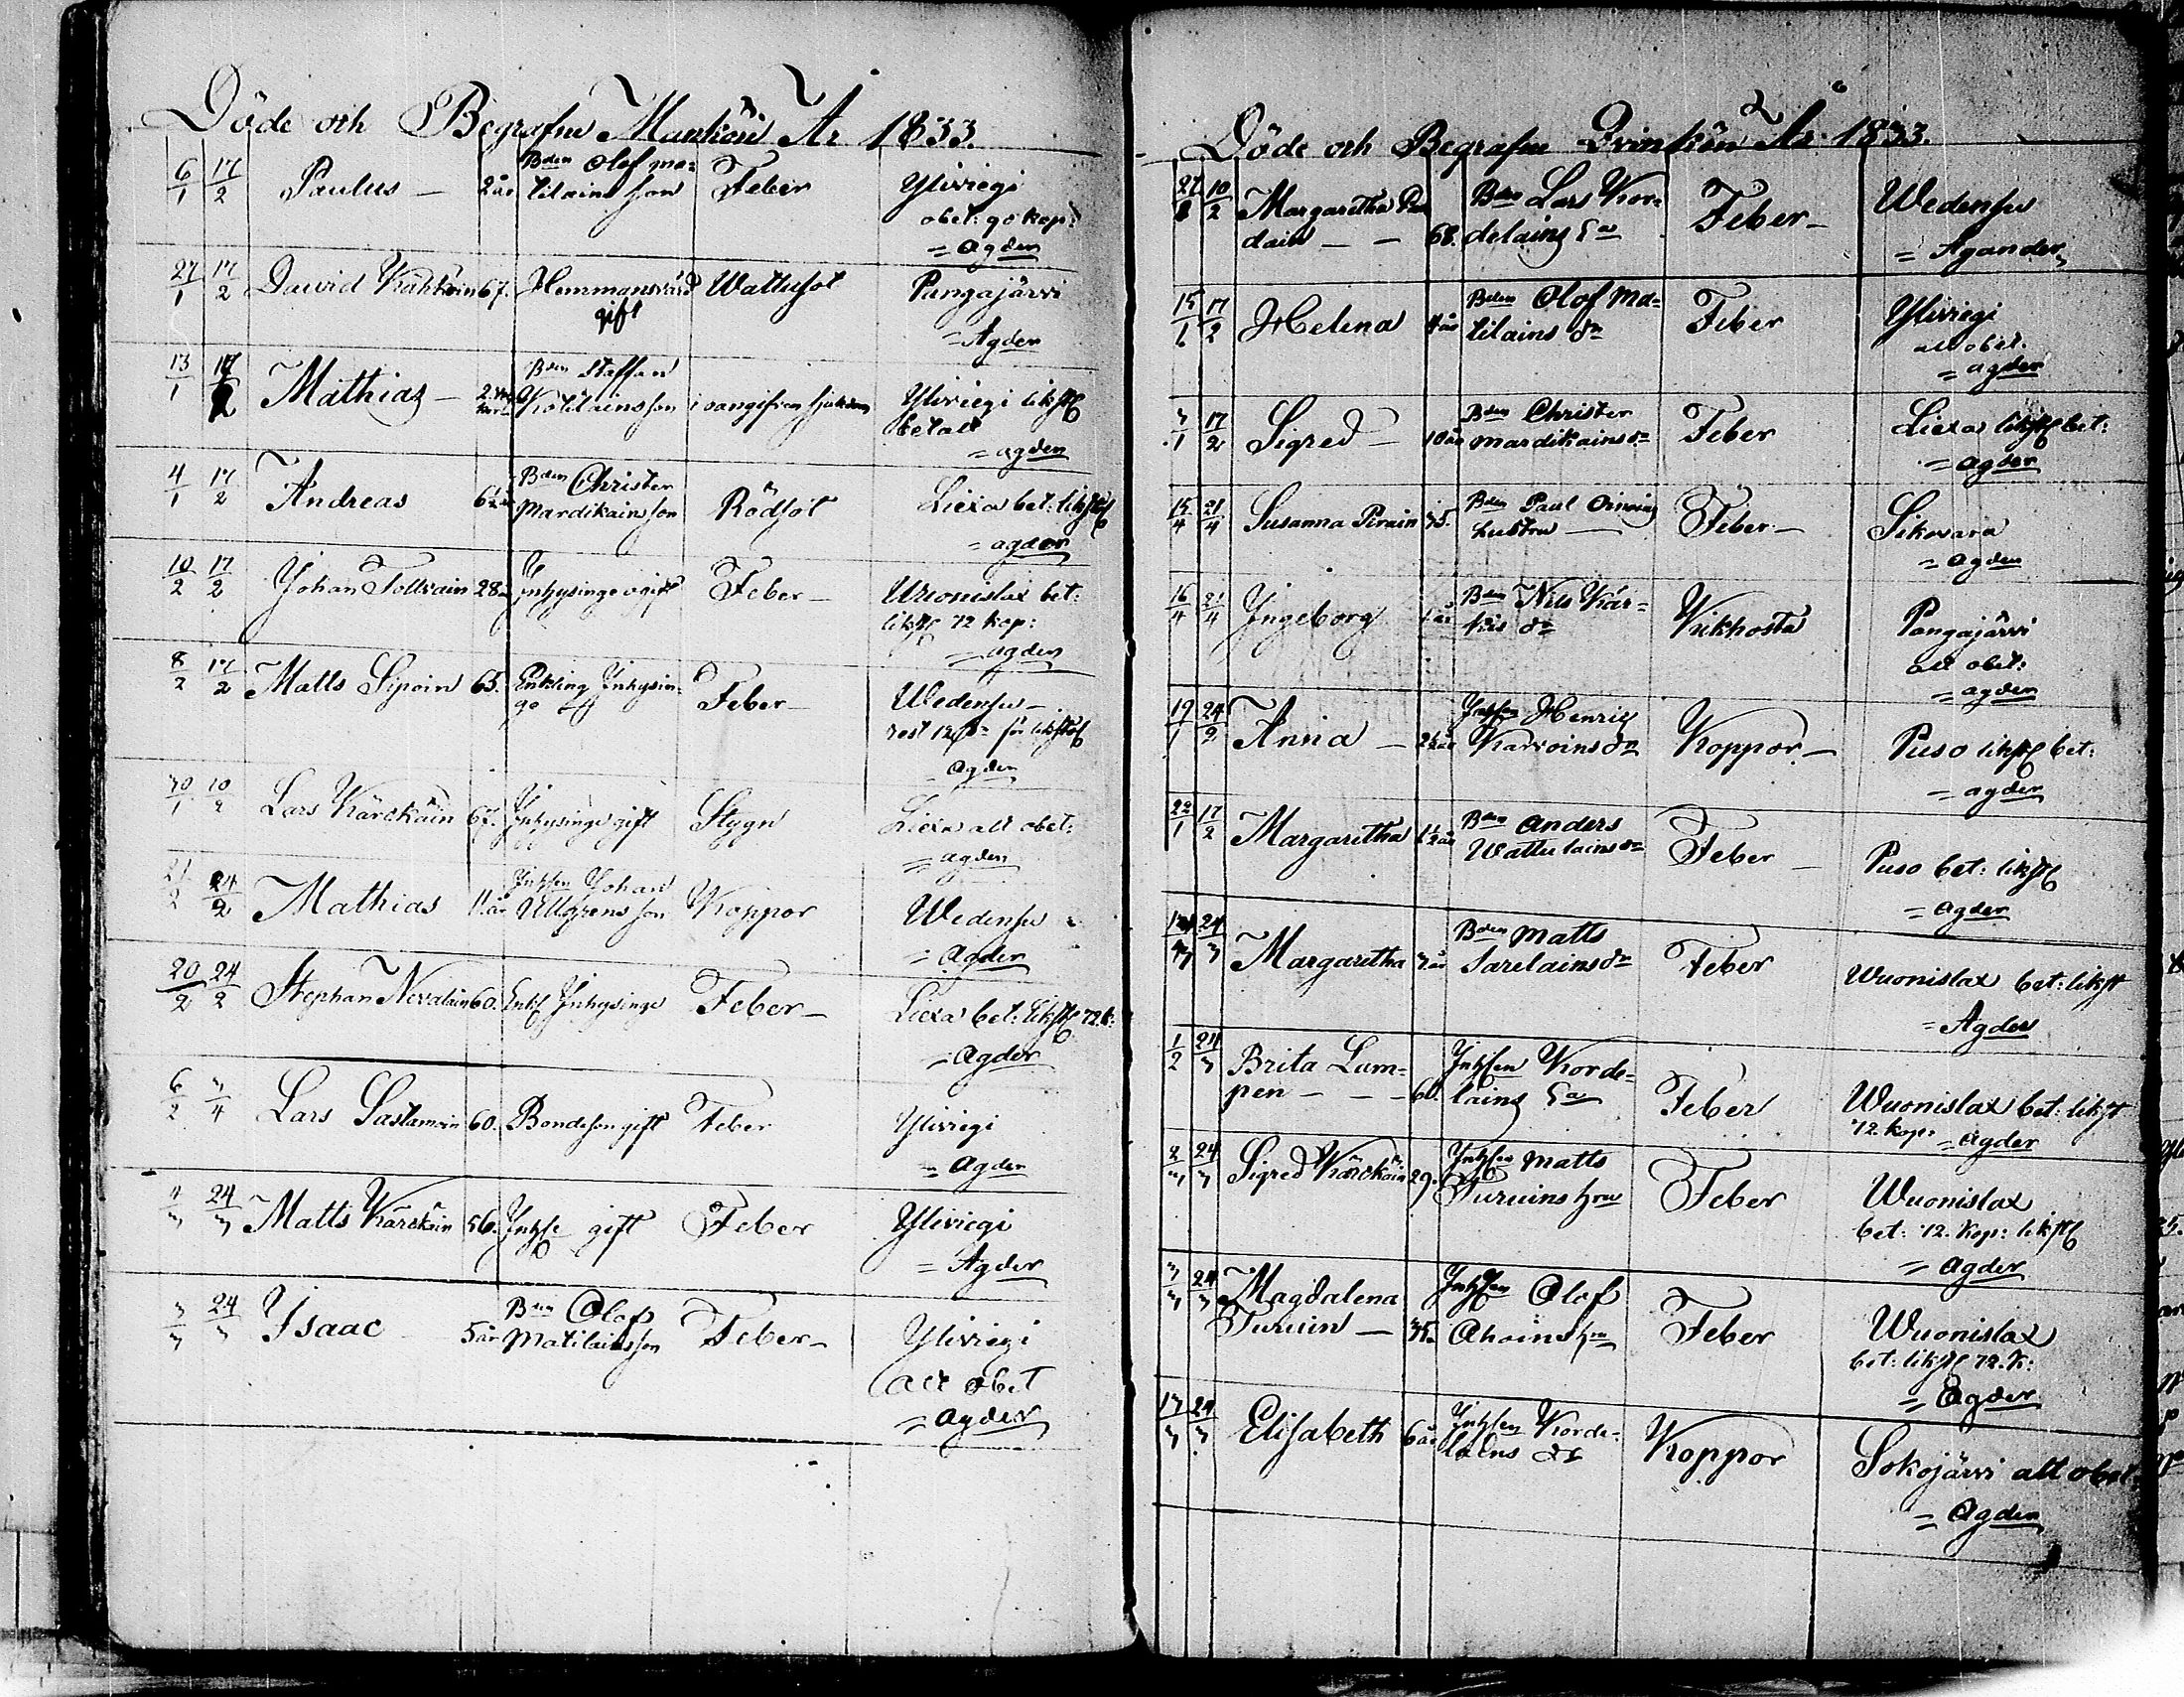 Döde och Begrafne Mankön År 1833.
6/1 17/2 Paulus — 2 år Bden Olof Ma=
tilains son Feber Yliviegi
obet: 90 kop:
= Agder
27/1 17/2 David Kähköin 67. Hemmansvärd Wattusot Pangajärvi
gift
= Agder
13/1 17/2 Mathias — Bden Staffan
Kotilains son oangifven sjukdom Yliviegi likstol
betalt
= agder
4/1 17/2 Andreas 6½ år Bden Christer
Mardikains son Rödsot Liexa bet: likstol
= agder
10/2 17/2 Johan Tolvain 28 Inhysinge ogift Feber — Wuonislax bet:
likstol 72 kop:
= agder
8/2 17/2 Matts Sipoin 65. Enkling Inhysin=
ge Feber — Wedensu —
rest 12 för likstol
= Agder
30/1 10/2 Lars Kärckäin 67. Inhysinge gift Stygn Liexa alt obet:
= agder
21/2 24/2 Mathias 11 år Inhsen Johan
Ullgrens son Koppor Wedensu
= Agder
20/2 24/2 Stephan Nevalain 60. Enkl Inhysinge Feber — Liexa bet: likstol 72 k:
= Agder
6/2 3/4 Lars Sastamoin 60. Bondeson gift Feber Yliviegi
= Agder
4/3 24/3 Matts Kärckäin 56. Inhse gift Feber Yliviegi
= Agder
3/3 24/3 Isaac 5 år Bden Olof
Matilains son Feber — Yliviegi
alt obet
= Agder
Döde och Begrafne Qvinkön År 1833.
27/1 10/2 Margaretha
dain — — 68. Bden Lars Kor=
delains Ea Feber — Wedensu
= Agander
15/1 17/2 Helena 4 år Bden Olof Ma=
tilains dr Feber Yliviegi
alt obet.
= agder
3/1 17/2 Sigred — 10 år Bden Christer
Mardikains dr Feber Liexa likstol bet:
= agder
15/4 21/4 Susanna Pirain 35. Bden Paul Oinoing
hustru — Feber — Sikovara
= agder
16/4 21/4 Ingeborg 1 år Bden Nils Kär=
kis dr Kikhosta Pangajärvi
alt obet:
= agder
19/1 24/2 Anna — 2½ år Inhsen Henric
Karvoins dr Koppor — Puso likstol bet:
= agder
22/1 17/2 Margaretha 1½ år Bden Anders
Wattulains dr Feber — Puso bet: likstol
= Agder
24/3 Margaretha 3 år Bden Matts
Sarelains dr Feber Wuonislax bet: likst
= Agder
1/2 24/3 Brita Lam=
pen — — 60. Inhsen Korde=
lains Ea Feber Wuonislax bet: likst
72 kop: = Agder
2/3 24/3 Sigred Kärckäin 29. Inhsen Matts
Turuins hru Feber Wuonislax
bet: 72. kop: likstol
= Agder
3/3 24/3 Magdalena
Turuin — 35. Inhsen Olof
Ahoins hru Feber Wuonislax
bet: likstol 72. k:
= Agder
17/3 24/3 Elisabeth 6 år Inhsen Korde=
lains dr Koppor Sokojärvi alt obet
= Agder